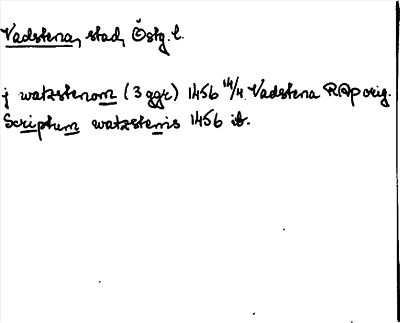 Vadstena, stad, Östg. l.
j watzstenom (3 ggr) 1456 14/4 Vadstena RAp orig.
Scriptum watzstenis 1456 ib.